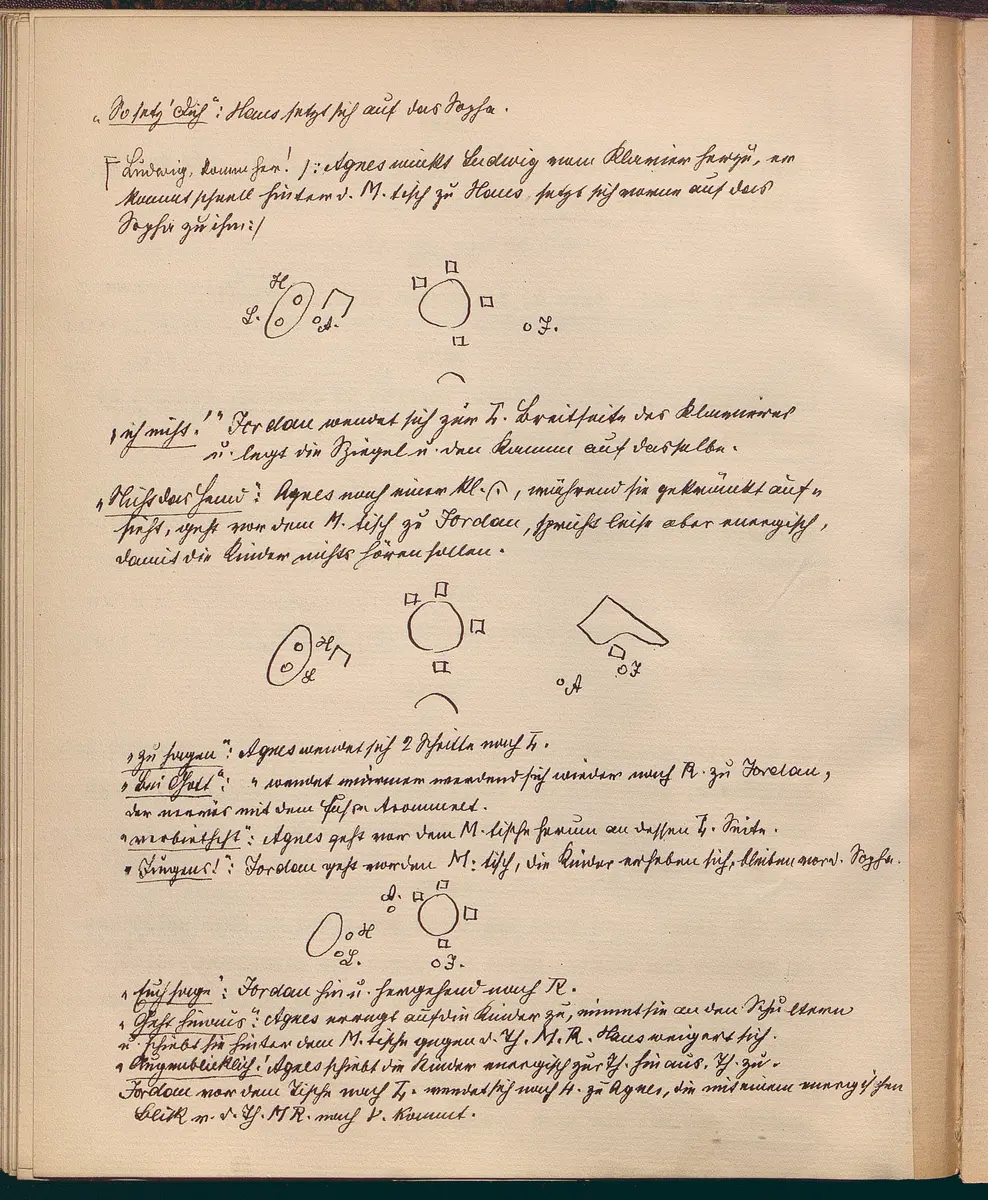 „So setz' Dich“: Hans setzt sich auf das Sopha.
Ludwig, komm her! /: Agnes winkt Ludwig vom Klavier herzu, er
kommt schnell hinter d. M. tisch zu Hans, setzt sich vorne auf das
Sopha zu ihm :/
H
L. A.
J.
„ich nicht!“ Jordan wendet sich zur L. Breitseite des Klavieres
u. legt die Spiegel u. den Kamm auf dasselbe.
„Nicht das Hemd“: Agnes nach einer kl. , während sie gekränkt auf-
steht, geht vor dem M. tisch zu Jordan, spricht leise aber energisch,
damit die Kinder nichts hören sollen.
H
L
J
A
„zu sagen“: Agnes wendet sich 2 Schritte nach L.
„bei Gott“: „ wendet wärmer werdend sich wieder nach R. zu Jordan,
der nervös mit dem Fuße trommelt.
„verbiethest“: Agnes geht vor dem M. tische herum an dessen L. Seite.
„Jungens!“: Jordan geht vor den M. tisch, die Kinder erheben sich, bleiben vor d. Sopha.
A.
H
L. J.
„Euch sage“: Jordan hin u. hergehend nach R.
„Geht hinaus“: Agnes erregt auf die Kinder zu, nimmt sie an den Schultern
u. schiebt sie hinter dem M. tische gegen d. Th. M. R. Hans weigert sich.
„Augenblicklich! Agnes schiebt die Kinder energisch zur Th. hinaus. Th. zu.
Jordan vor dem Tische nach L. wendet sich nach H. zu Agnes, die mit einem energischen
Blick v. d. Th. M R. nach V. kommt.